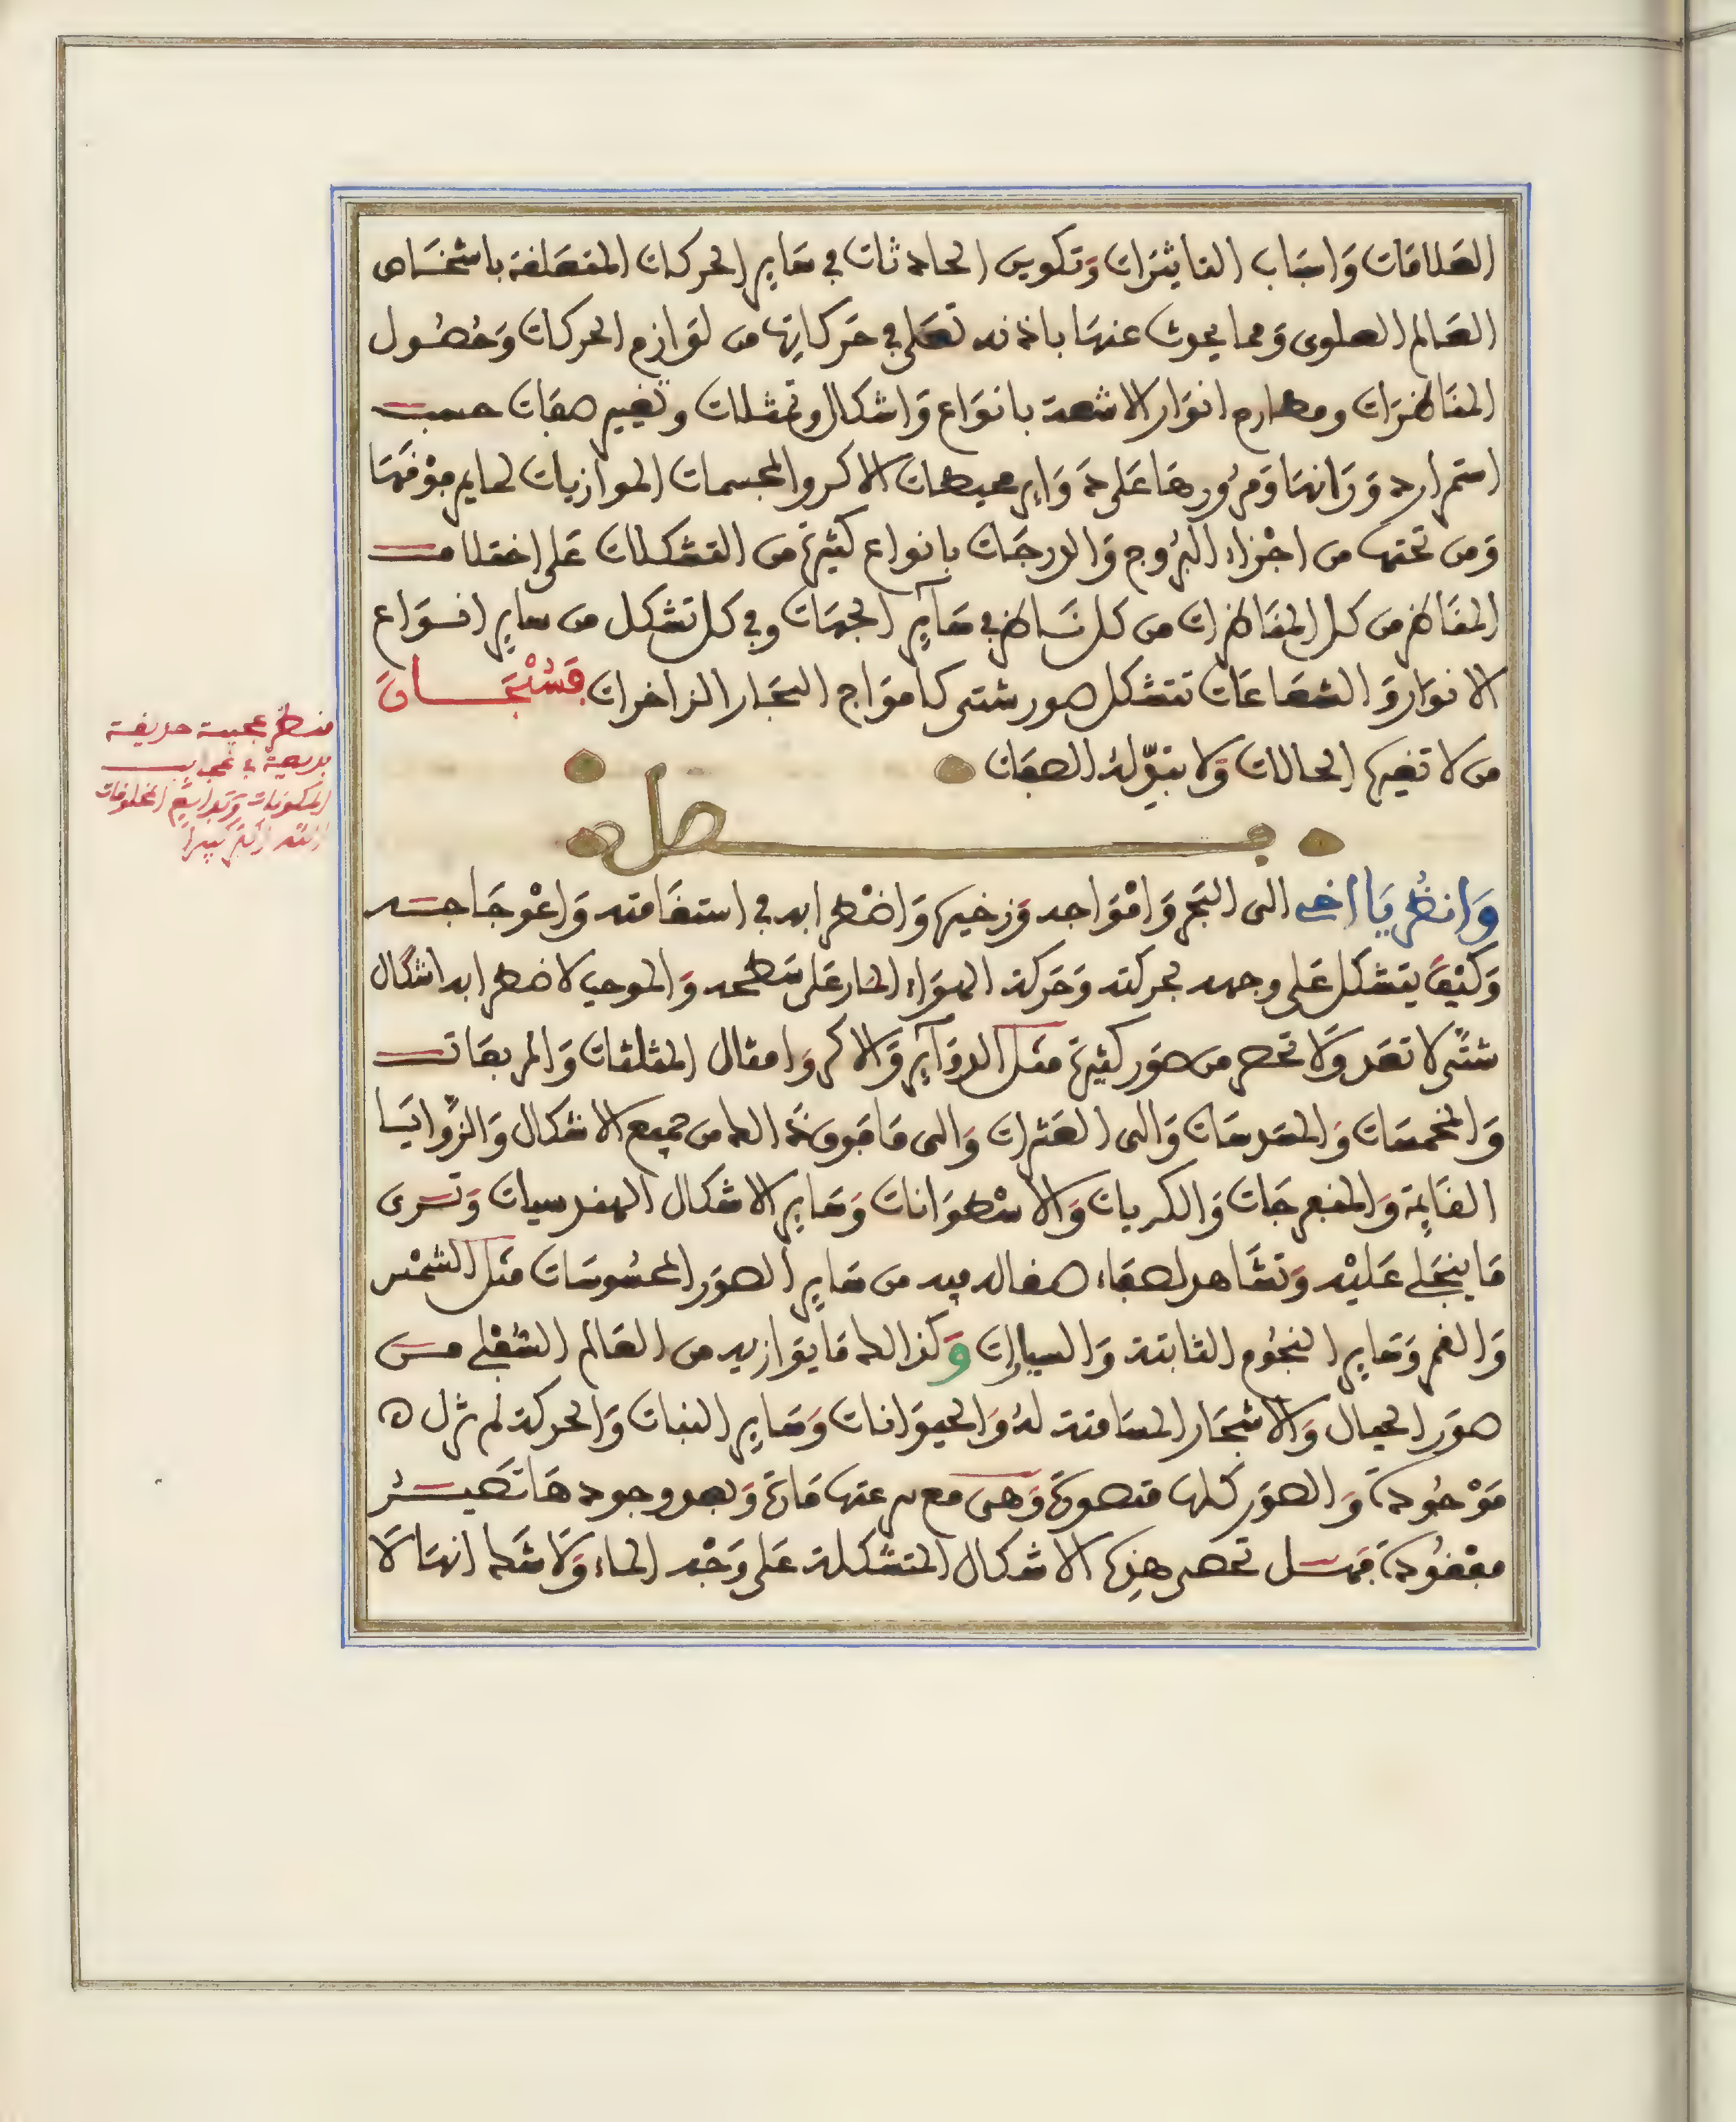 العلاقات وَاسبَاب التاثيرَات وَتكوين الحادثات في سَاير الحركات المتعَلقة باشخَاص
العَالم العلوى وَمما يحدث عنهَا باذنه تعَلى في حَركاتِها من لوَازم الحركات وَحُصُول
المنَاظرَات ومطارح انوَار الاشعة بانوَاع وَاشكال وتمثلات وتغيير صفات حسب
استمرار دوَرَانهَا وَمرُورهَا عَلى دوَاير محيطات الاكر والمجسمات الموازيات لما يلى فوْقهَا
وَمن تحتها من اجْزاء البرُوج وَالدرجَات بانواع كثيرة من التشكلات عَلى اختلاف
المنَاظر من كل المنَاظرات من كل نَاظر في سَاير الجهَات وفي كل تشكل من ساير انوَاع
الانوَار وَالشعَاعَات تتشكل صور شتى كامْوَاج البحَار الزاخرات فسُبْحَان
من لا تغيره الحالات وَلا تبدّله الصفات
فصل
وَانظُر يَا اخى الى البَحر وَامْوَاجه وَزخيره وَاضْطرابه في استقَامته وَاعْوجَاجه
وَكيْف يتشكل عَلى وجهه بحركته وَحَركة الهوَاء المار عَلى سَطحه وَالموجب لاضطرابه اشكال
شتّى لا تعَد وَلا تحصر من صوَر كثيرة مثل الدوَآير وَالاكر وَامثال المثلثات وَالمربعَات
وَالمخمسَات وَالمسَدسَات وَالى العَشرات وَالى مَا فوق ذَالك من جميع الاشكال وَالزّوَايَا
القَايمة وَالمنفرجَات وَالكريات وَالاسْطوَانات وَسَاير الاشكال الهندسيات وَترى
مَا ينجَلى عَليْه وَتشَاهد لصفَاء صقاله فيه من سَاير الصوَر المحسُوسَات مثل الشمْس
وَالقمر وَسَاير النجُوم الثابتة وَالسيارات وَكذالك مَا يوازيه من العَالم السُّفلى من
صوَر الجبال وَالاشجَار المسَامتة لهُ وَالحيوَانات وَسَاير النبات وَالحركة لم تزل
مَوْجُودة وَالصوَر كلها متصورَة وَهىَ مع سرعتها مَارة وَبعد وجودهَا تصير
مفقُودة فهل تحصى هذه الاشكال المتشكلة عَلى وَجْه الماء وَلا شك انهَا لا
منظر عجيبة
بديعة في عجايب
المكونات وبدايع المخلوقات
الله اكبر كبيرا